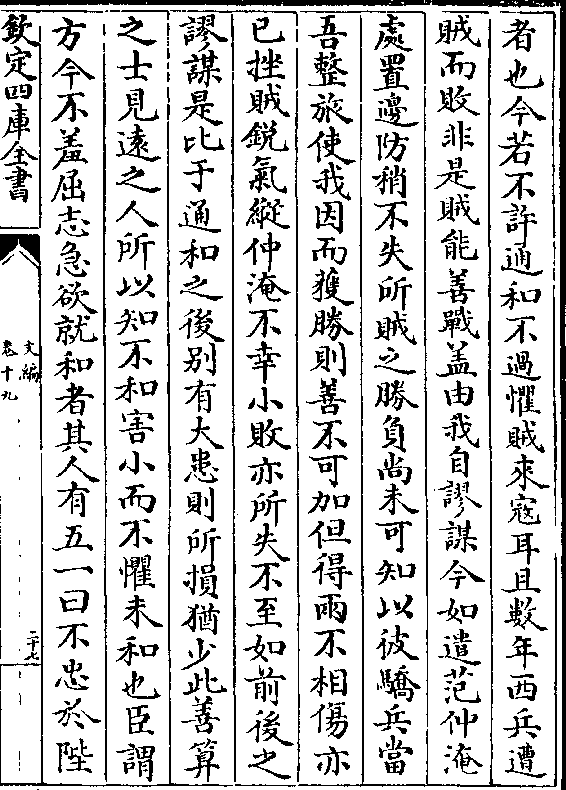 者也今若不許通和不過懼賊來寇耳且數年西兵遭
賊而敗非是賊能善戰盖由我自謬謀今如遣范仲淹
處置邊防稍不失所賊之勝負尚未可知以彼驕兵當
吾整旅使我因而獲勝則善不可加但得兩不相傷亦
已挫賊鋭氣縱仲淹不幸小敗亦所失不至如前後之
謬謀是比于通和之後别有大患則所損猶少此善算
之士見遠之人所以知不和害小而不懼未和也臣謂
方今不羞屈志急欲就和者其人有五一曰不忠於陛
欽定四庫全書
文編
卷十九
二十七